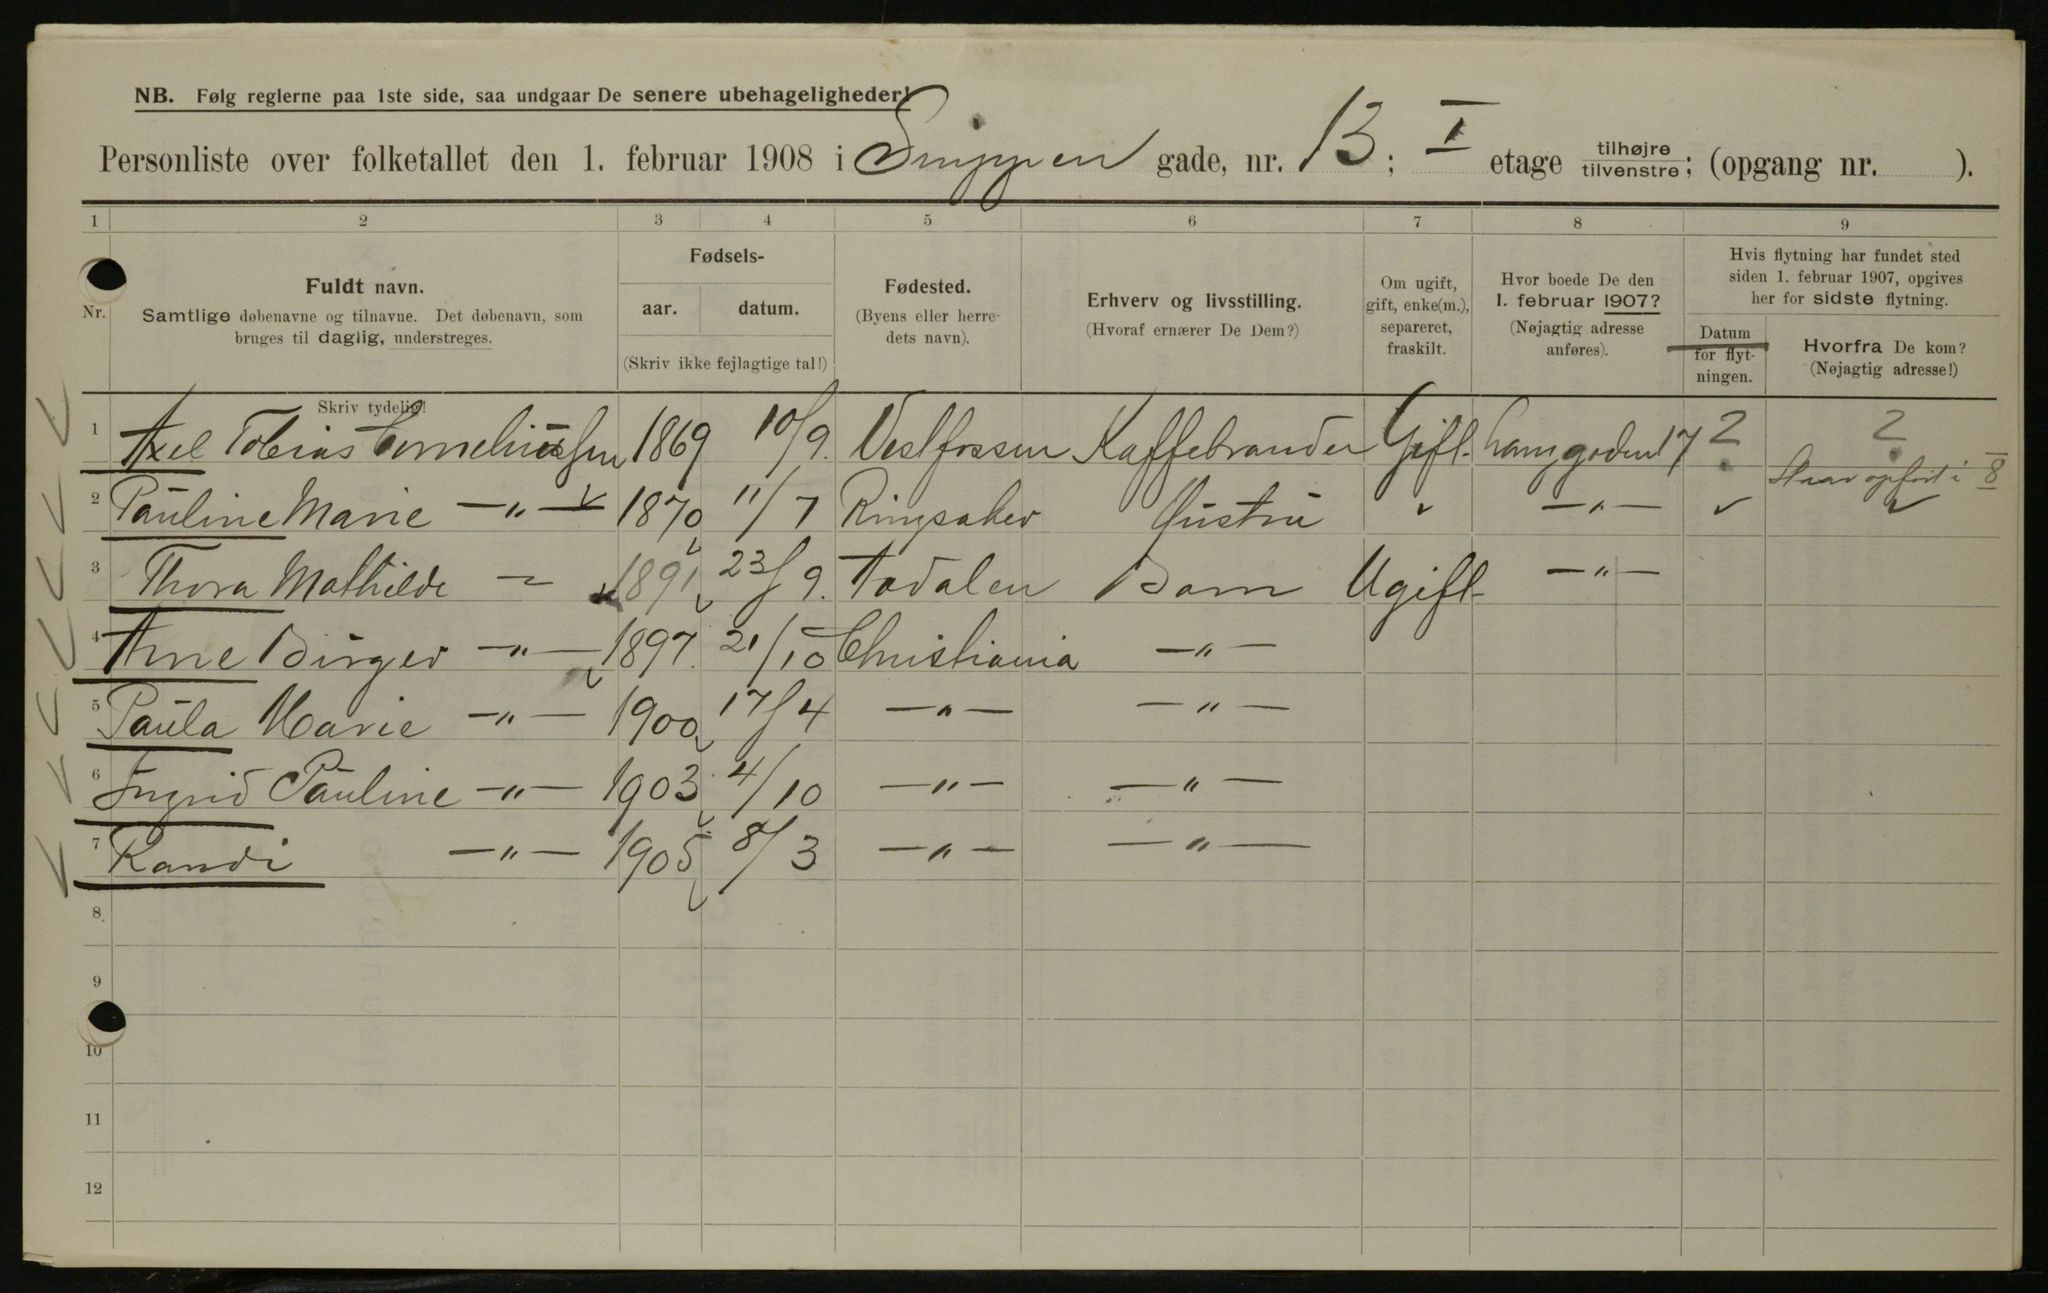 NB. Følg reglerne paa 1ste side, saa undgaar De senere ubehageligheder!
Personliste over folketallet den 1. februar 1908 i Snippen gade, nr. 13; I etage tilhøjre tilvenstre; (opgang nr. ).
1 2 3 4 5 6 7 8 9
Nr.
Fuldt navn.
Samtlige døbenavne og tilnavne. Det døbenavn, som
bruges til daglig, understreges.
Skriv tydelig!
Fødsels-
aar. datum.
(Skriv ikke fejlagtige tal!)
Fødested.
(Byens eller herre-
dets navn).
Erhverv og livsstilling.
(Hvoraf ernærer De Dem?)
Om ugift,
gift, enke(m.),
separeret,
fraskilt.
Hvor boede De den
1. februar 1907?
(Nøjagtig adresse
anføres).
Hvis flytning har fundet sted
siden 1. februar 1907, opgives
her for sidste flytning.
Datum
for flyt-
ningen.
Hvorfra De kom?
(Nøjagtig adresse!)
1 Axel Tobias Corneliussen 1869 10/9. Vestfossen Kaffebrander Gift. Langgaden 17 ? ?
Staar opført i 8
2 Pauline Marie —„— 1870 11/7 Ringsaker Hustru „ —„—
3 Thora Mathilde — 1891 23/9. Aadalen Barn Ugift —„—
4 Arne Birger —„— 1897 21/10 Christiania —„—
5 Paula Marie —„— 1900 17/4 —„— —„—
6 Ingrid Pauline —„— 1903 4/10 —„— —„—
7 Randi —„— 1905 8/3 —„— —„—
8
9
10
11
12